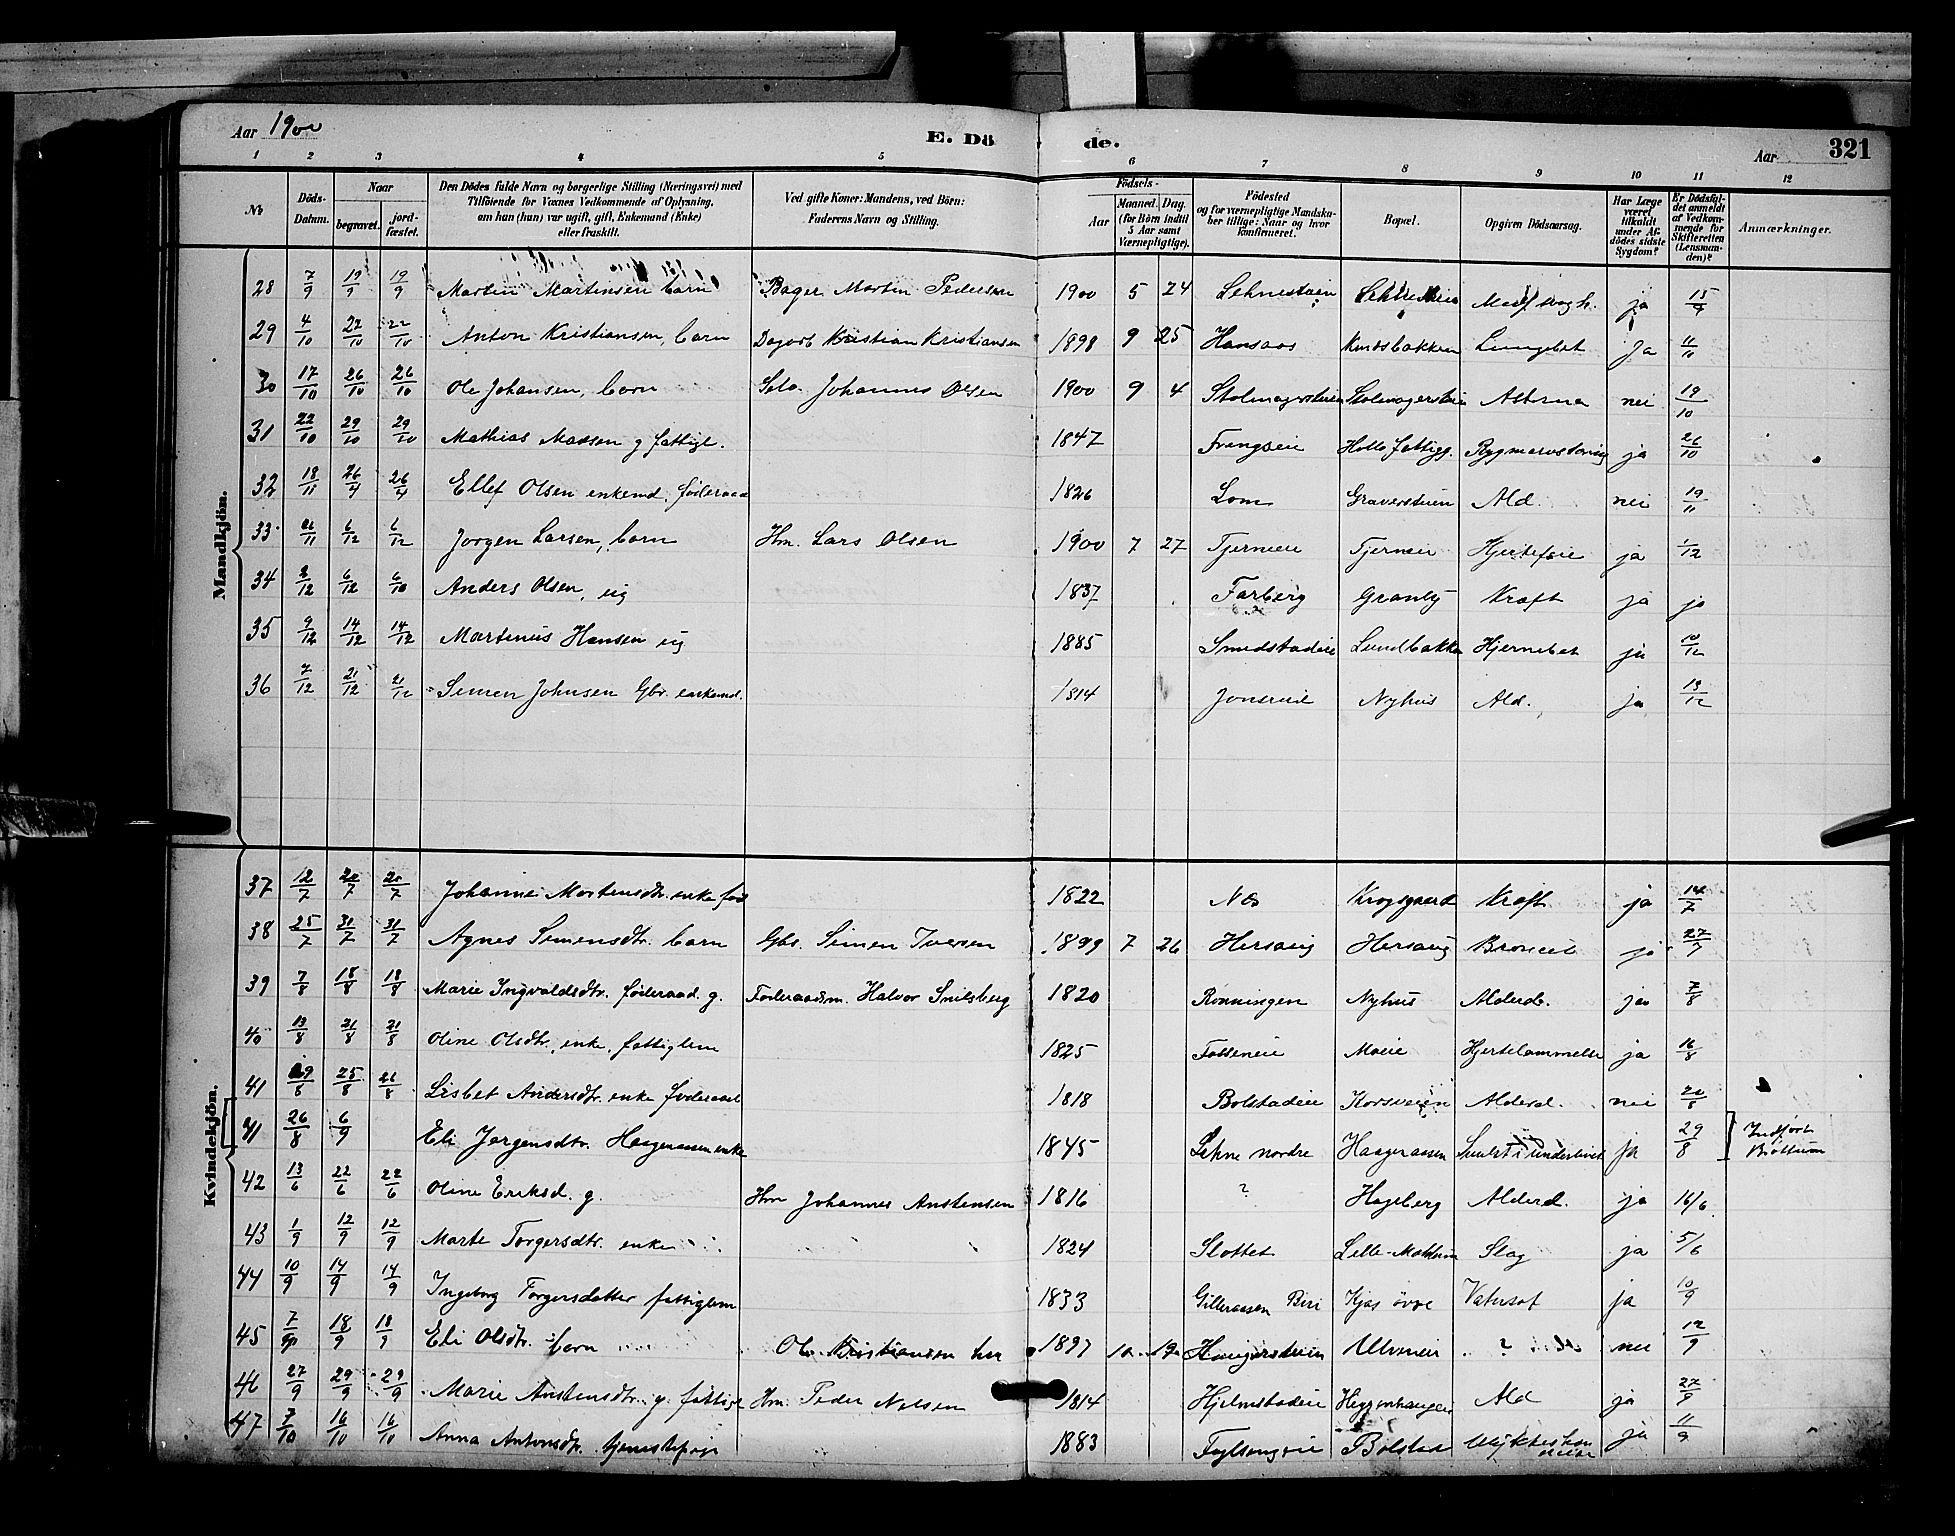 Aar 1900
E. Dö
de.
Aar
321
1 2 3 4 5 6 7 8 9 10 11 12
No
Döds-Datum.
Naar
begravet.
jord-fæstet.
Den Dödes fulde Navn og borgerlige Stilling (Næringsvei) med
Tilföiende for Voxnes Vedkommende af Oplysning,
om han (hun) var ugift, gift, Enkemand (Enke)
eller fraskilt.
Ved gifte Koner: Mandens, ved Börn:
Faderens Navn og Stilling.
Födsels-
Aar
Maaned. Dag.
(for Börn indtil
5 Aar samt
Værnepligtige).
Födested
og for værnepligtige Mandska-
ber tillige: Naar og hvor
konfirmeret.
Bopæl.
Opgiven Dödsaarsag.
Har Læge
været
tilkaldt
under Af-
dödes sidste
Sygdom?
Er Dödsfal-
det anmeldt
af Vedkom-
mende for
Skifteretten
(Lensman-
den)?
Anmærkninger.
Mandkjön.
28 7/9 19/9 19/9 Martin Martinsen barn Bager Martin Pedersen 1900 5 24 ja
29 4/10 22/10 22/10 Anton Kristiansen, barn Dagarb Kristian Kristiansen 1898 9 25 Hansaas Knudsbakken Lungebet ja 11/10
30 17/10 26/10 26/10 Ole Johansen, barn Selv. Johannes Olsen 1900 9 4 Stolmagersteien Stolmagersteien Astma nei 19/10
31 22/10 29/10 29/10 Mathias Madsen g fattigl. 1847 Frengseie Holte fattigg. Rygmarvstæring ja 26/10
32 18/11 26/4 26/4 Ellef Olsen enkemd. föderaad 1826 Lom Graversteien Ald. nei 19/11
33 6/12 6/12 Jorgen Larsen, barn Hm. Lars Olsen 1900 7 27 Tjerneie Tjerneie Hjertefeie ja 1/12
34 2/12 6/12 6/10 Anders Olsen, ug 1837 Farberg Granby Kræft ja ja
35 9/12 14/12 14/12 Martinus Hansen ug 1885 Smedstadeie Lundbakken Hjernebet ja 10/12
36 7/12 21/12 21/12 Simen Johnsen Gbr. enkemd. 1814 Jonsrud Nyhus Ald. ja 13/12
Kvindekjön.
37 12/7 20/7 20/7 Johanne Mortensdtr. enke föd 1822 Næs Krogsgaard Kræft ja 14/7
38 25/7 31/7 31/7 Agnes Simensdtr. barn Gbr. Simen Iversen 1899 7 26 Hersaug Hersaug Broncit ja 27/7
39 7/8 18/8 18/8 Marie Ingvaldsdtr. föderaad. g. Föderaadsm. Halvor Snilsberg 1820 Rönningen Nyhus Alderdr. ja 7/8
40 13/8 21/8 21/8 Oline Olsdtr., enke, fattiglem 1825 Moeie Hjertelammelse ja 16/8
41 19/8 25/8 26/8 Lisbet Andersdtr. enke föderaad 1818 Bolstadeie Korsveien Alderd. nei 20/8
41 26/8 6/9 Eli Jørgensdtr. Haageraasen enke 1845 Lekne nordre Haageraasen Svulst i underlivet ja 29/8 Indført Brøttum
42 13/6 22/6 22/6 Oline Eriksd. g. Hm Johannes Anstensen 1816 ? Hageberg Alderd. ja 16/6
43 1/9 12/9 12/9 Marte Torgersdtr. enke 1824 Slottet Slag ja 5/6
44 10/9 14/9 14/9 Ingeborg Torgersdatter fattiglem 1833 Gilleraasen Biri Kjos övre Vatersot ja 10/9
45 7/9 18/9 18/9 Eli Olsdtr. barn Ole Kristiansen hm 1897 10 19 Ulvneie ? nei 12/9
46 27/9 29/9 29/9 Marie Anstensdtr. g. fattigl Hm. Peder Nelsen 1814 Hjelmstadeie Heggenhaugen Ald ja 27/9
47 7/10 16/10 16/10 Anna Antonsdtr. tjenestepige 1883 Fuglsengveie Bolstad Ulykkeshændelse ja 11/9